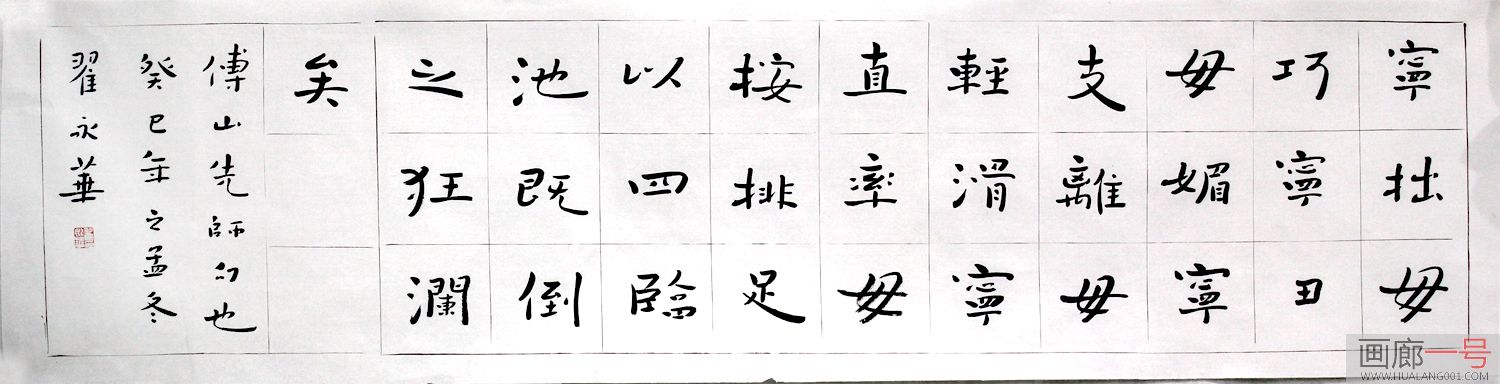 寧拙毋
巧寧丑
毋媚寧
支離毋
輕滑寧
直率毋
按排足
以四臨
池既倒
之狂瀾
矣
傅山先師句也
癸巳年之孟冬
翟永華
画廊一号
WWW.HUALANG001.COM